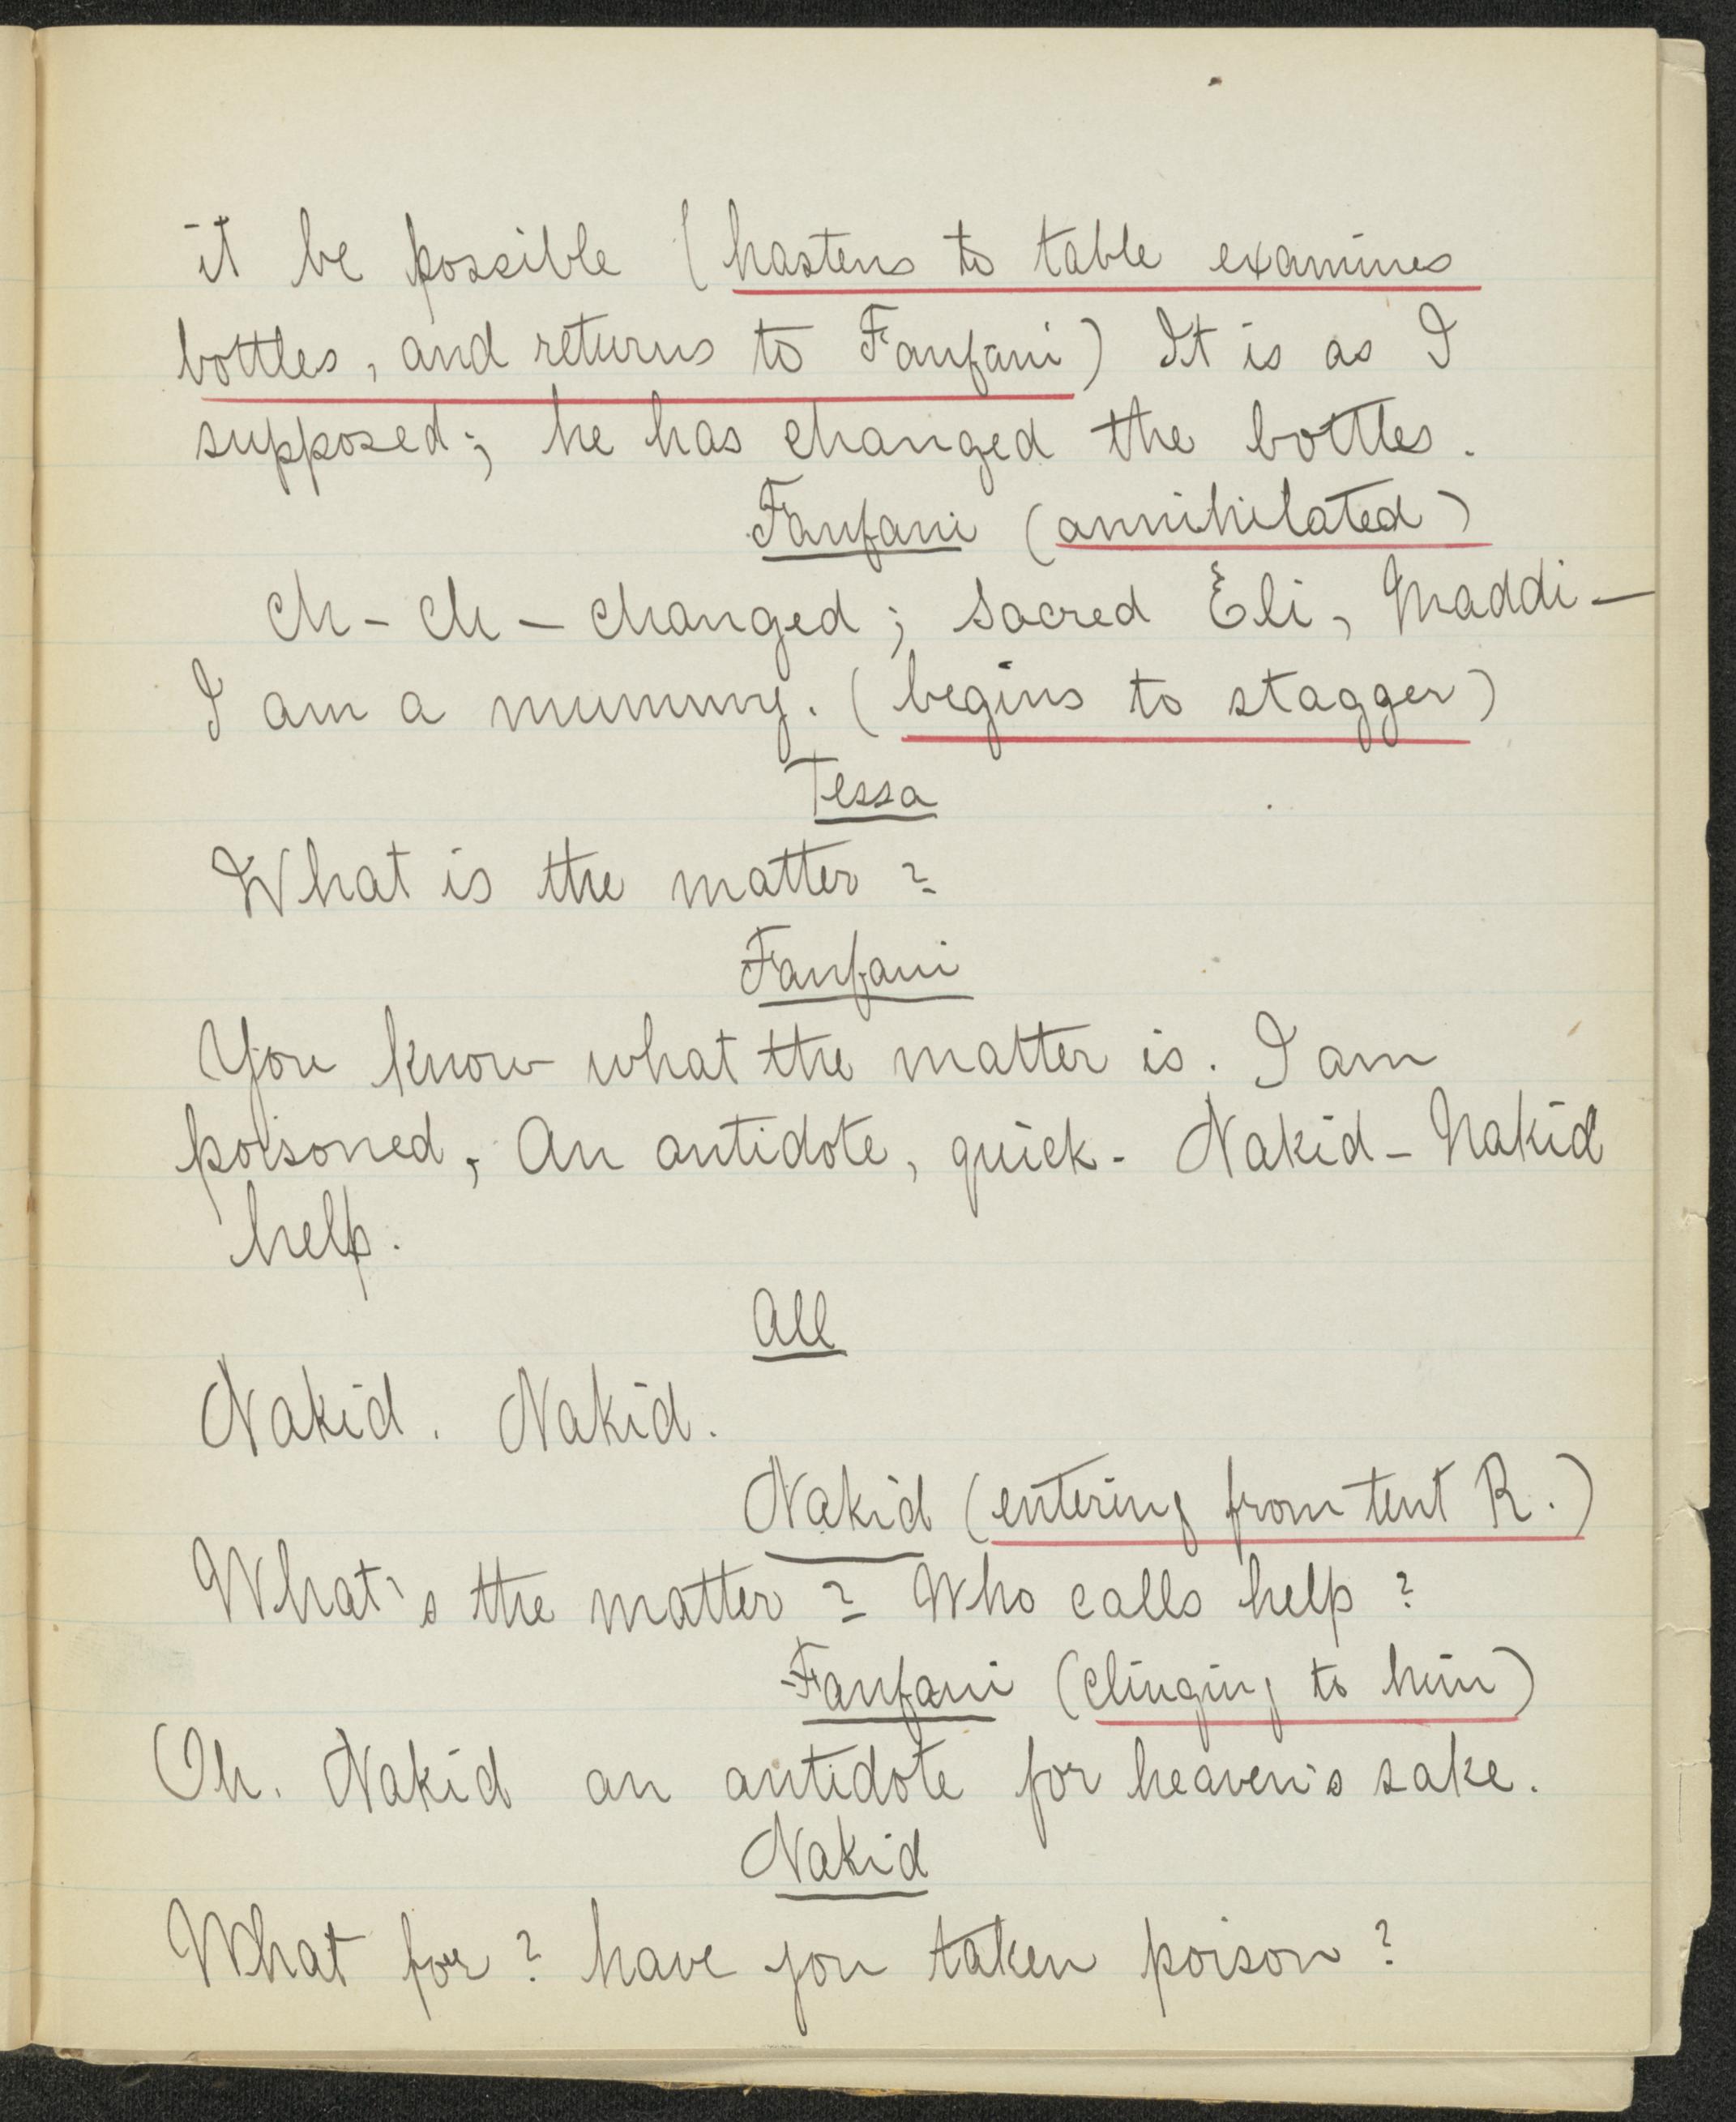 it be possible (hastens to table examines
bottles, and returns to Fanfani) It is as I
supposed; he has changed the bottles.
Fanfani (annihilated)
ch - ch - changed; sacred Eli, Maddi -
I am a mummy. (begins to stagger)
Tessa
What is the matter?
Fanfani
You know what the matter is. I am
poisoned, An antidote, quick - Nakid - Nakid
help.
All
Nakid. Nakid.
Nakid (entering from tent R.)
What's the matter? Who calls help?
Fanfani (clinging to him)
Oh. Nakid an antidote for heaven's sake.
Nakid
What for? have you taken poison?